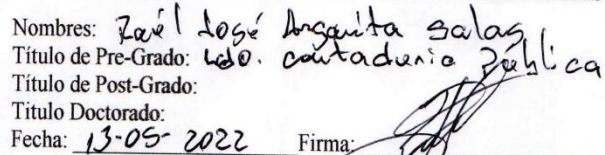 Nombres: José Angarita Salas
Título de Pre-Grado: Lcdo. contaduria Pública
Título de Post-Grado:
Titulo Doctorado:
Fecha: 13-05-2022 Firma: